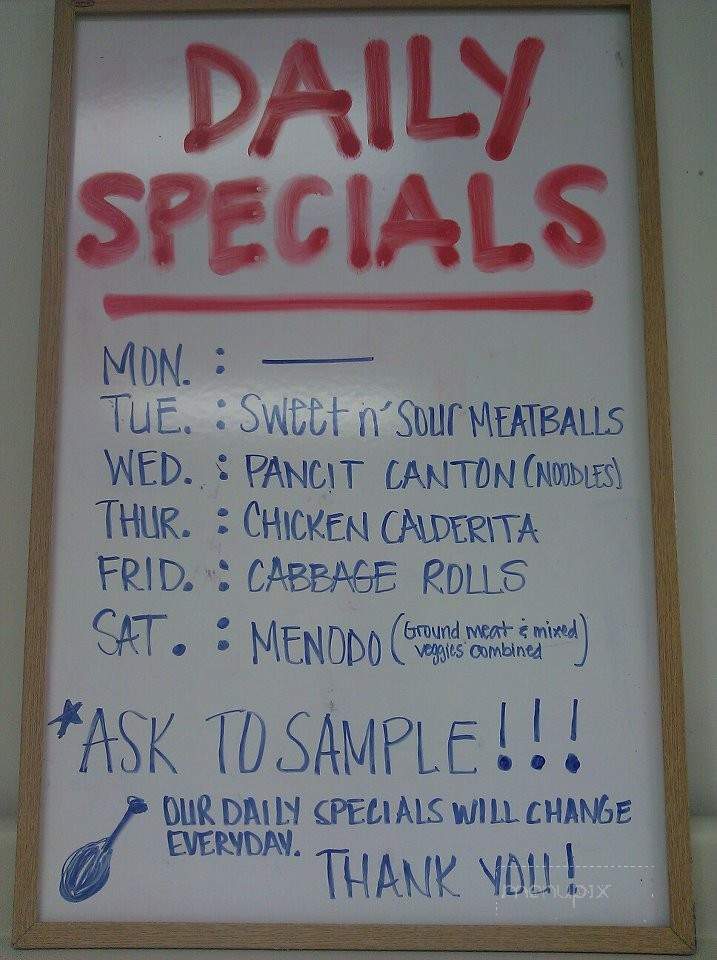 DAILY
SPECIALS
MON. : ——
TUE. : Sweet n' Sour MEATBALLS
WED. : PANCIT CANTON (NOODLES)
THUR. : CHICKEN CALDERITA
FRID. : CABBAGE ROLLS
SAT. : MENODO (Ground meat & mixed
veggies combined)
*ASK TO SAMPLE!!!
OUR DAILY SPECIALS WILL CHANGE
EVERYDAY.
THANK YOU!
menupix